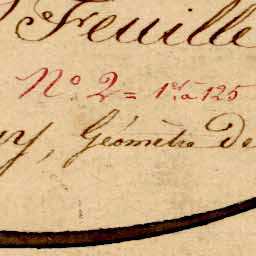 Feuille
N° 2 = 1er à 125
, Géomètre de